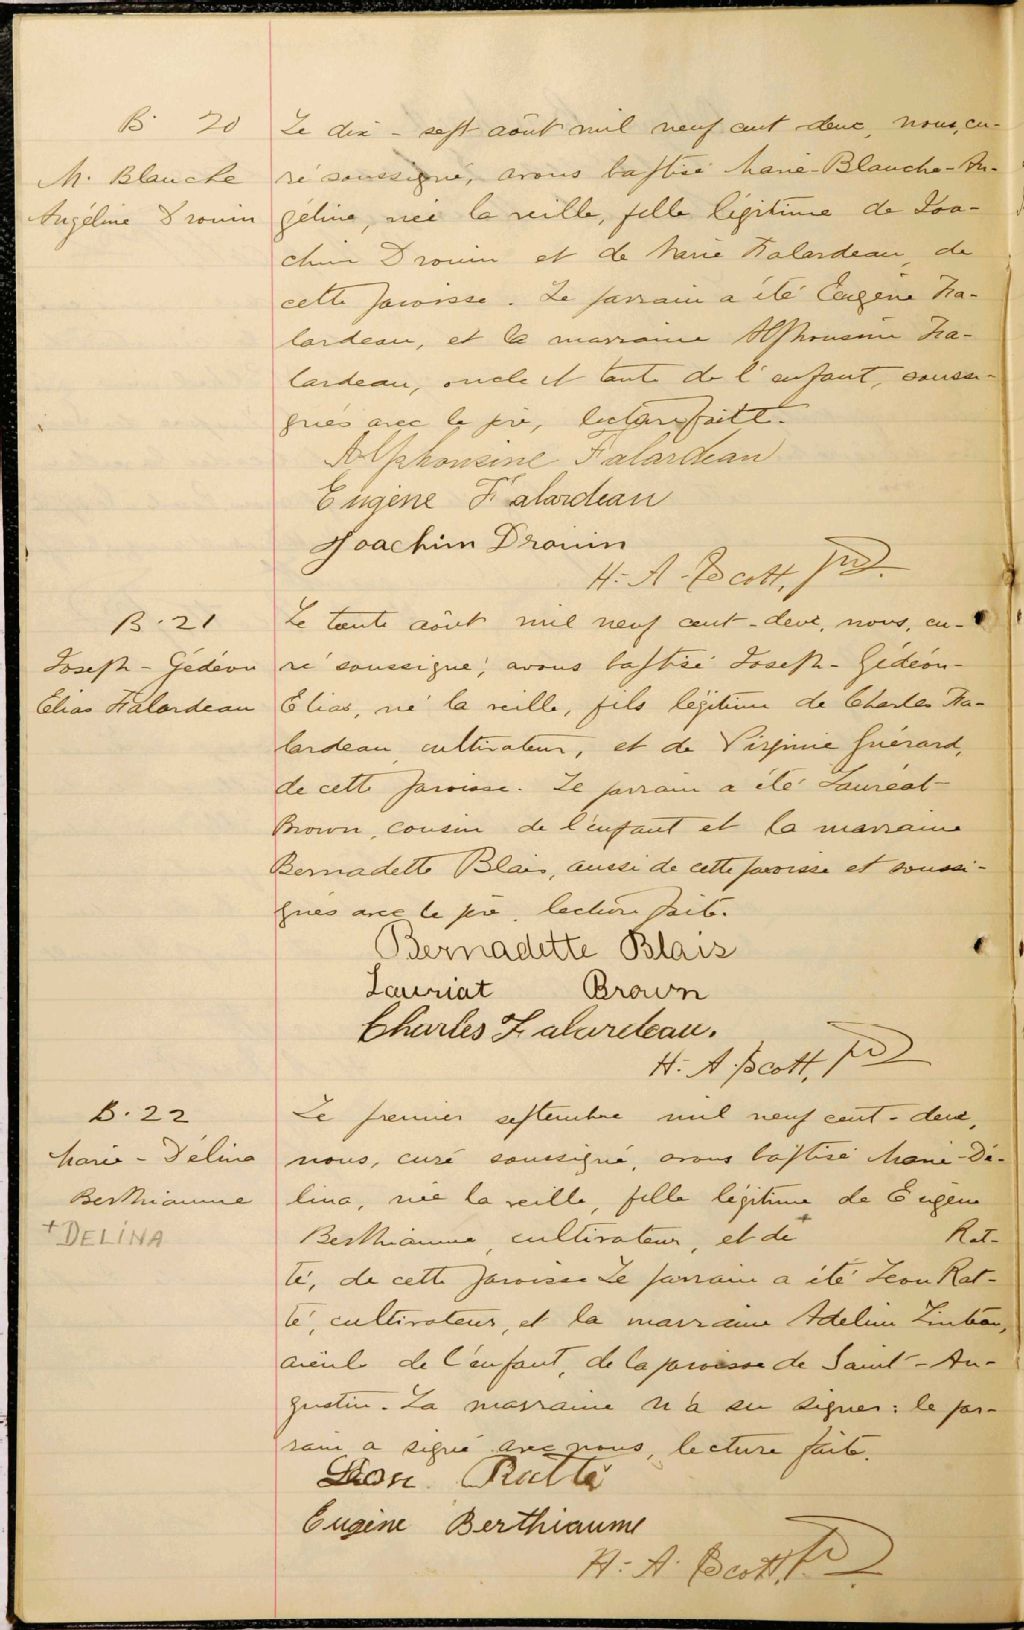 B. 20
M. Blanche
Angéline Drouin
Le dix-sept août mil neuf cent deux, nous, cu-
ré soussigné, avons baptisé Marie-Blanche-An-
géline, née la veille, fille légitime de Joa-
chim Drouin et de Marie Falardeau, de
cette paroisse. Le parrain a été Eugène Fa-
lardeau, et la marraine Alphonsine Fa-
lardeau, oncle et tante de l'enfant, soussi-
gnés avec le père, lecture faite.
Alphonsine Falardeau
Eugène Falardeau
Joachim Drouin
H.-A. Scott, ptre
B. 21
Joseph-Gédéon
Elias Falardeau
Le trente août mil neuf cent-deux, nous, cu-
ré soussigné, avons baptisé Joseph-Gédéon-
Elias, né la veille, fils légitime de Charles Fa-
lardeau, cultivateur, et de Virginie Guérard,
de cette paroisse. Le parrain a été Lauréat
Brown, cousin de l'enfant et la marraine
Bernadette Blais, aussi de cette paroisse et soussi-
gnés avec le père, lecture faite.
Bernadette Blais
Lauriat Brown
Charles Falardeau.
H.-A. Scott, ptre
B. 22
Marie-Délina
Berthiaume
+DELINA
Le premier septembre mil neuf cent-deux,
nous, curé soussigné, avons baptisé Marie-Dé-
lina, née la veille, fille légitime de Eugène
Berthiaume, cultivateur, et de + Rat-
té, de cette paroisse Le parrain a été Léon Rat-
té, cultivateur, et la marraine Adeline Linteau,
aïeuls de l'enfant, de la paroisse de Saint-Au-
gustin. La marraine n'a su signer: le par-
rain a signé avec nous, lecture faite.
Léon Ratté
Eugène Berthiaume
H.-A. Scott, ptre